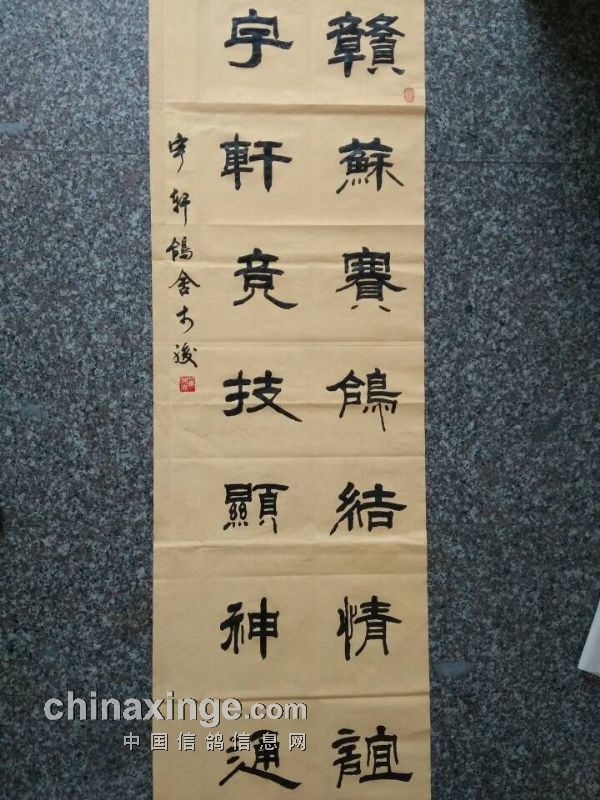 贛蘇賽鴿結情誼
宇軒竞技顯神通
宇軒鴿舍
chinaxinge.com
中国信鸽信息网